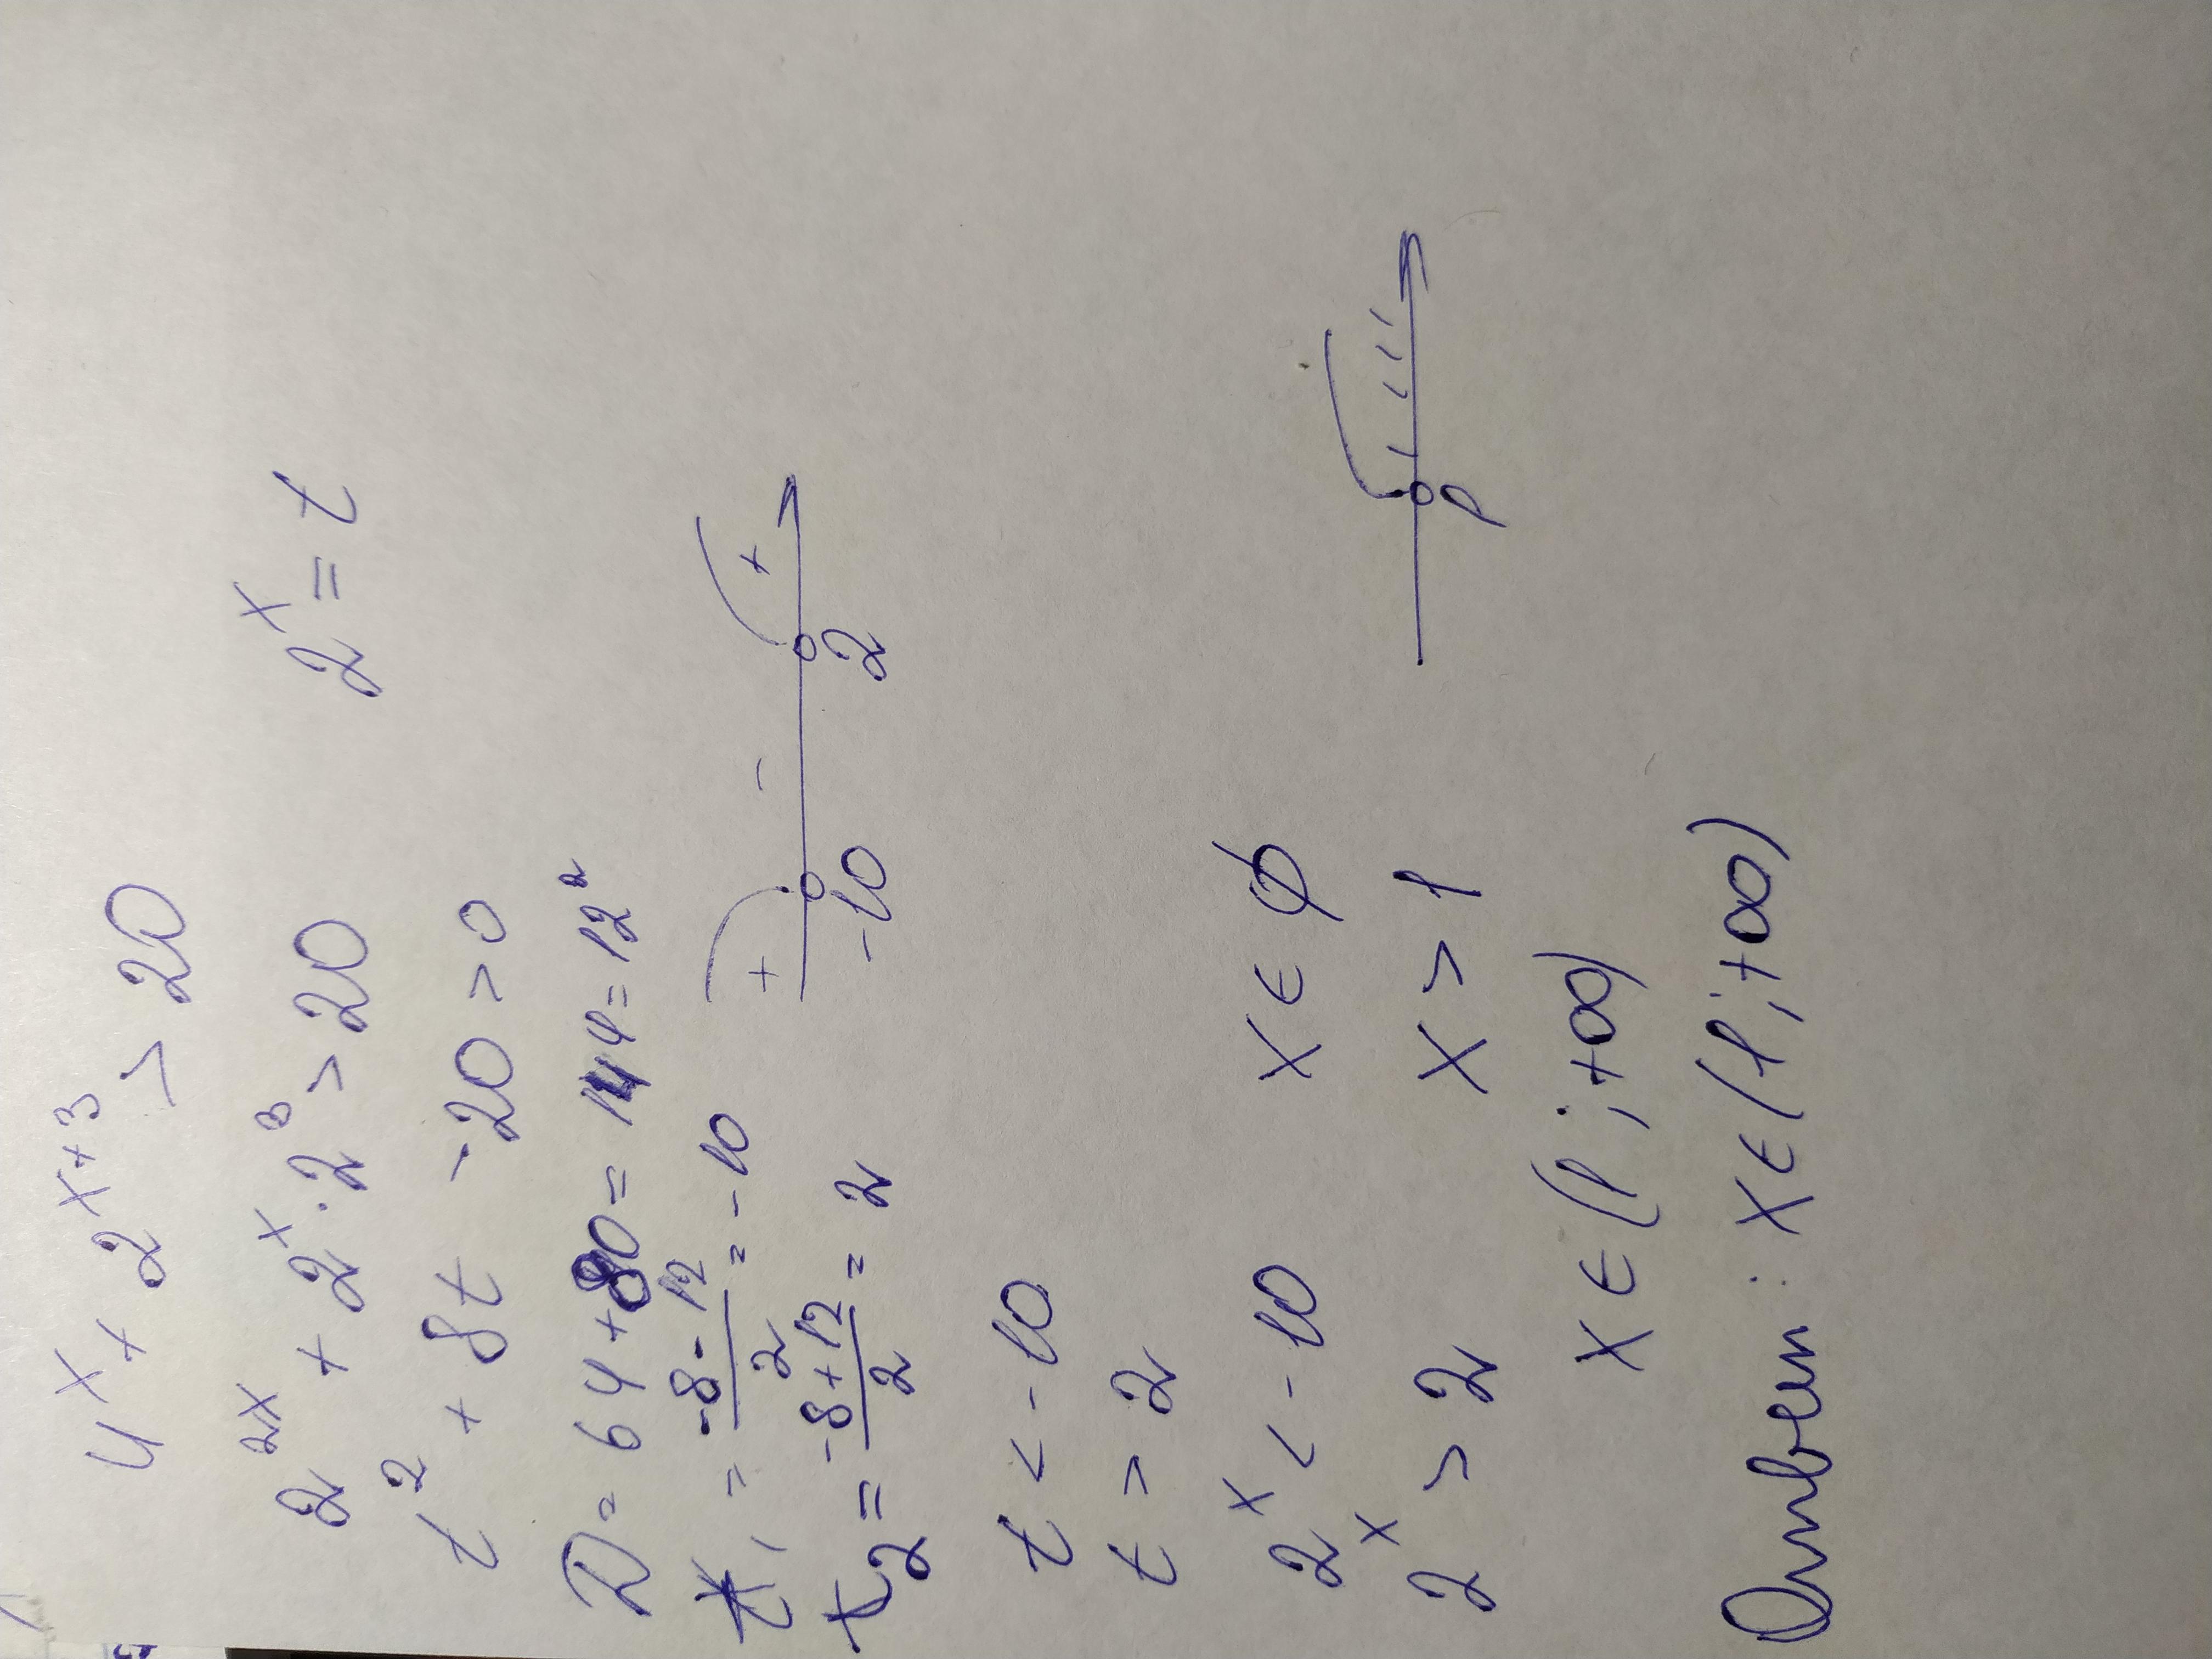 4^x + 2^{x+3} > 20
2^{2x} + 2^x · 2^3 > 20
2^x = t
t^2 + 8t - 20 > 0
D = 64 + 80 = 144 = 12^2
t_1 = \frac{-8-12}{2} = -10
t_2 = \frac{-8+12}{2} = 2
+ - +
-10 2
t < -10
t > 2
2^x < -10 x ∈ ∅
2^x > 2 x > 1
1
x ∈ (1; +∞)
Ответ: x ∈ (1; +∞)